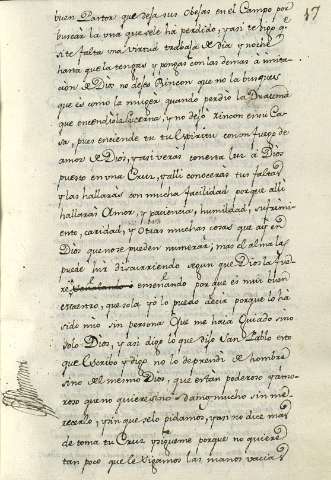 17
buen Pastor que deja sus obejas en el Campo por
buscar la una que se le ha perdido, y asi te digo q̃
si te falta una virtud trabaja de dia y noche
hasta que la tengas y pongas con las demas a imita-
cion de Dios no dejes Rincon que no la busques
que es como la muger quando perdio la Dracma
que encendio la lucerna, y no dejo Rincon en su Ca-
sa, pues enciende tu tu Espiritu con un fuego de
amor de Dios, y asi veras con esta luz a Dios
puesto en una Cruz, y alli conoceras tus faltas
y las hallaràs con mucha facilidad porque alli
hallaras Amor, y paciencia, humildad, sufrimi-
ento, caridad, y otras muchas cosas que ay en
Dios que no se pueden numerar, mas el alma las
puede hir discurriendo segun que Dios la fue-
re enseñando porque es mui buen
maestro, que sola yo lo puedo decir porque lo ha
sido mio sin persona que me haia Guiado sino
solo Dios, y asi digo lo que dijo San Pablo esto
que escribo y digo no lo deprendi de hombre
sino de el mesmo Dios, que es tan poderoso y amo-
roso que no quiere sino darnos mucho sin me-
recerlo, y sin que se lo pidamos, y asi no dice mas
de toma tu Cruz y sigueme porque no quiere
tan poco que le sigamos las manos vacias